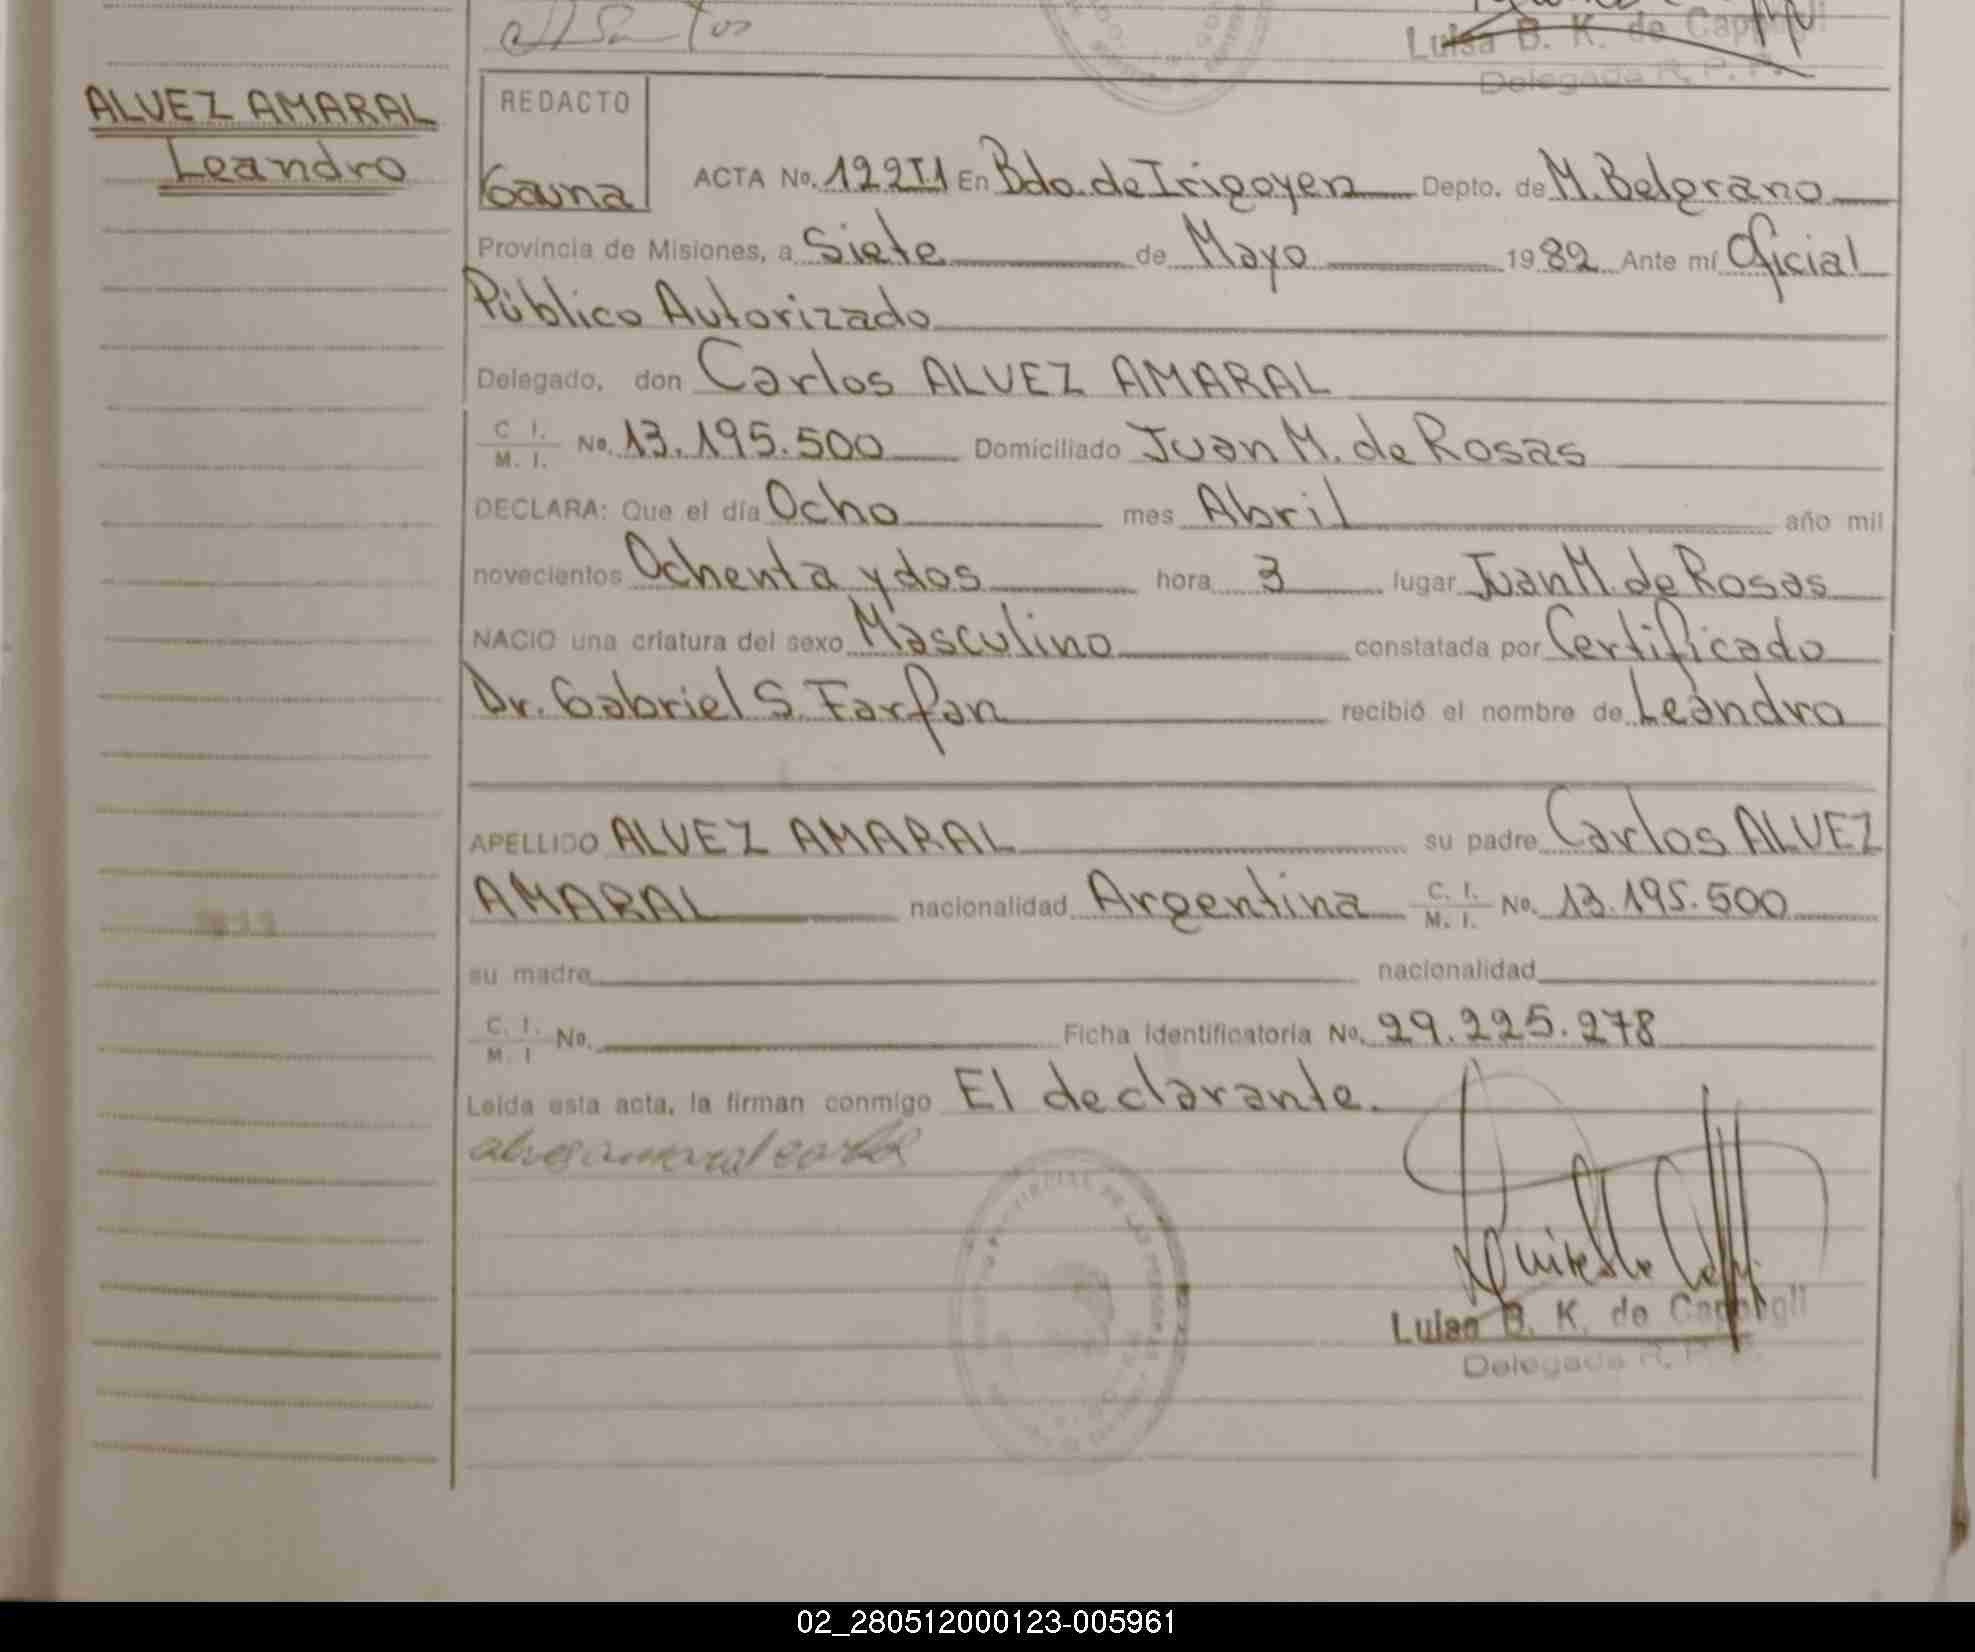 Luisa B. K. de Capp
Delegada R. P. P.
ALVEZ AMARAL
Leandro
REDACTO
Gauna
ACTA No. 122T1 En Bdo. de Irigoyen Depto. de M. Belgrano
Provincia de Misiones, a Siete de Mayo 1982 Ante mí Oficial
Público Autorizado
Delegado, don Carlos ALVEZ AMARAL
C. I. / M. I. No. 13.195.500 Domiciliado Juan M. de Rosas
DECLARA: Que el día Ocho mes Abril año mil
novecientos Ochenta y dos hora 3 lugar Juan M. de Rosas
NACIO una criatura del sexo Masculino constatada por Certificado
Dr. Gabriel S. Farfan recibió el nombre de Leandro
APELLIDO ALVEZ AMARAL su padre Carlos ALVEZ
AMARAL nacionalidad Argentina C. I. / M. I. No. 13.195.500
su madre nacionalidad
C. I. / M. I No. Ficha identificatoria No. 29.225.278
Leída esta acta, la firman conmigo El declarante.
alves amaral carlos
Luisa B. K. de Cap
Delegada R. P.
02_280512000123-005961